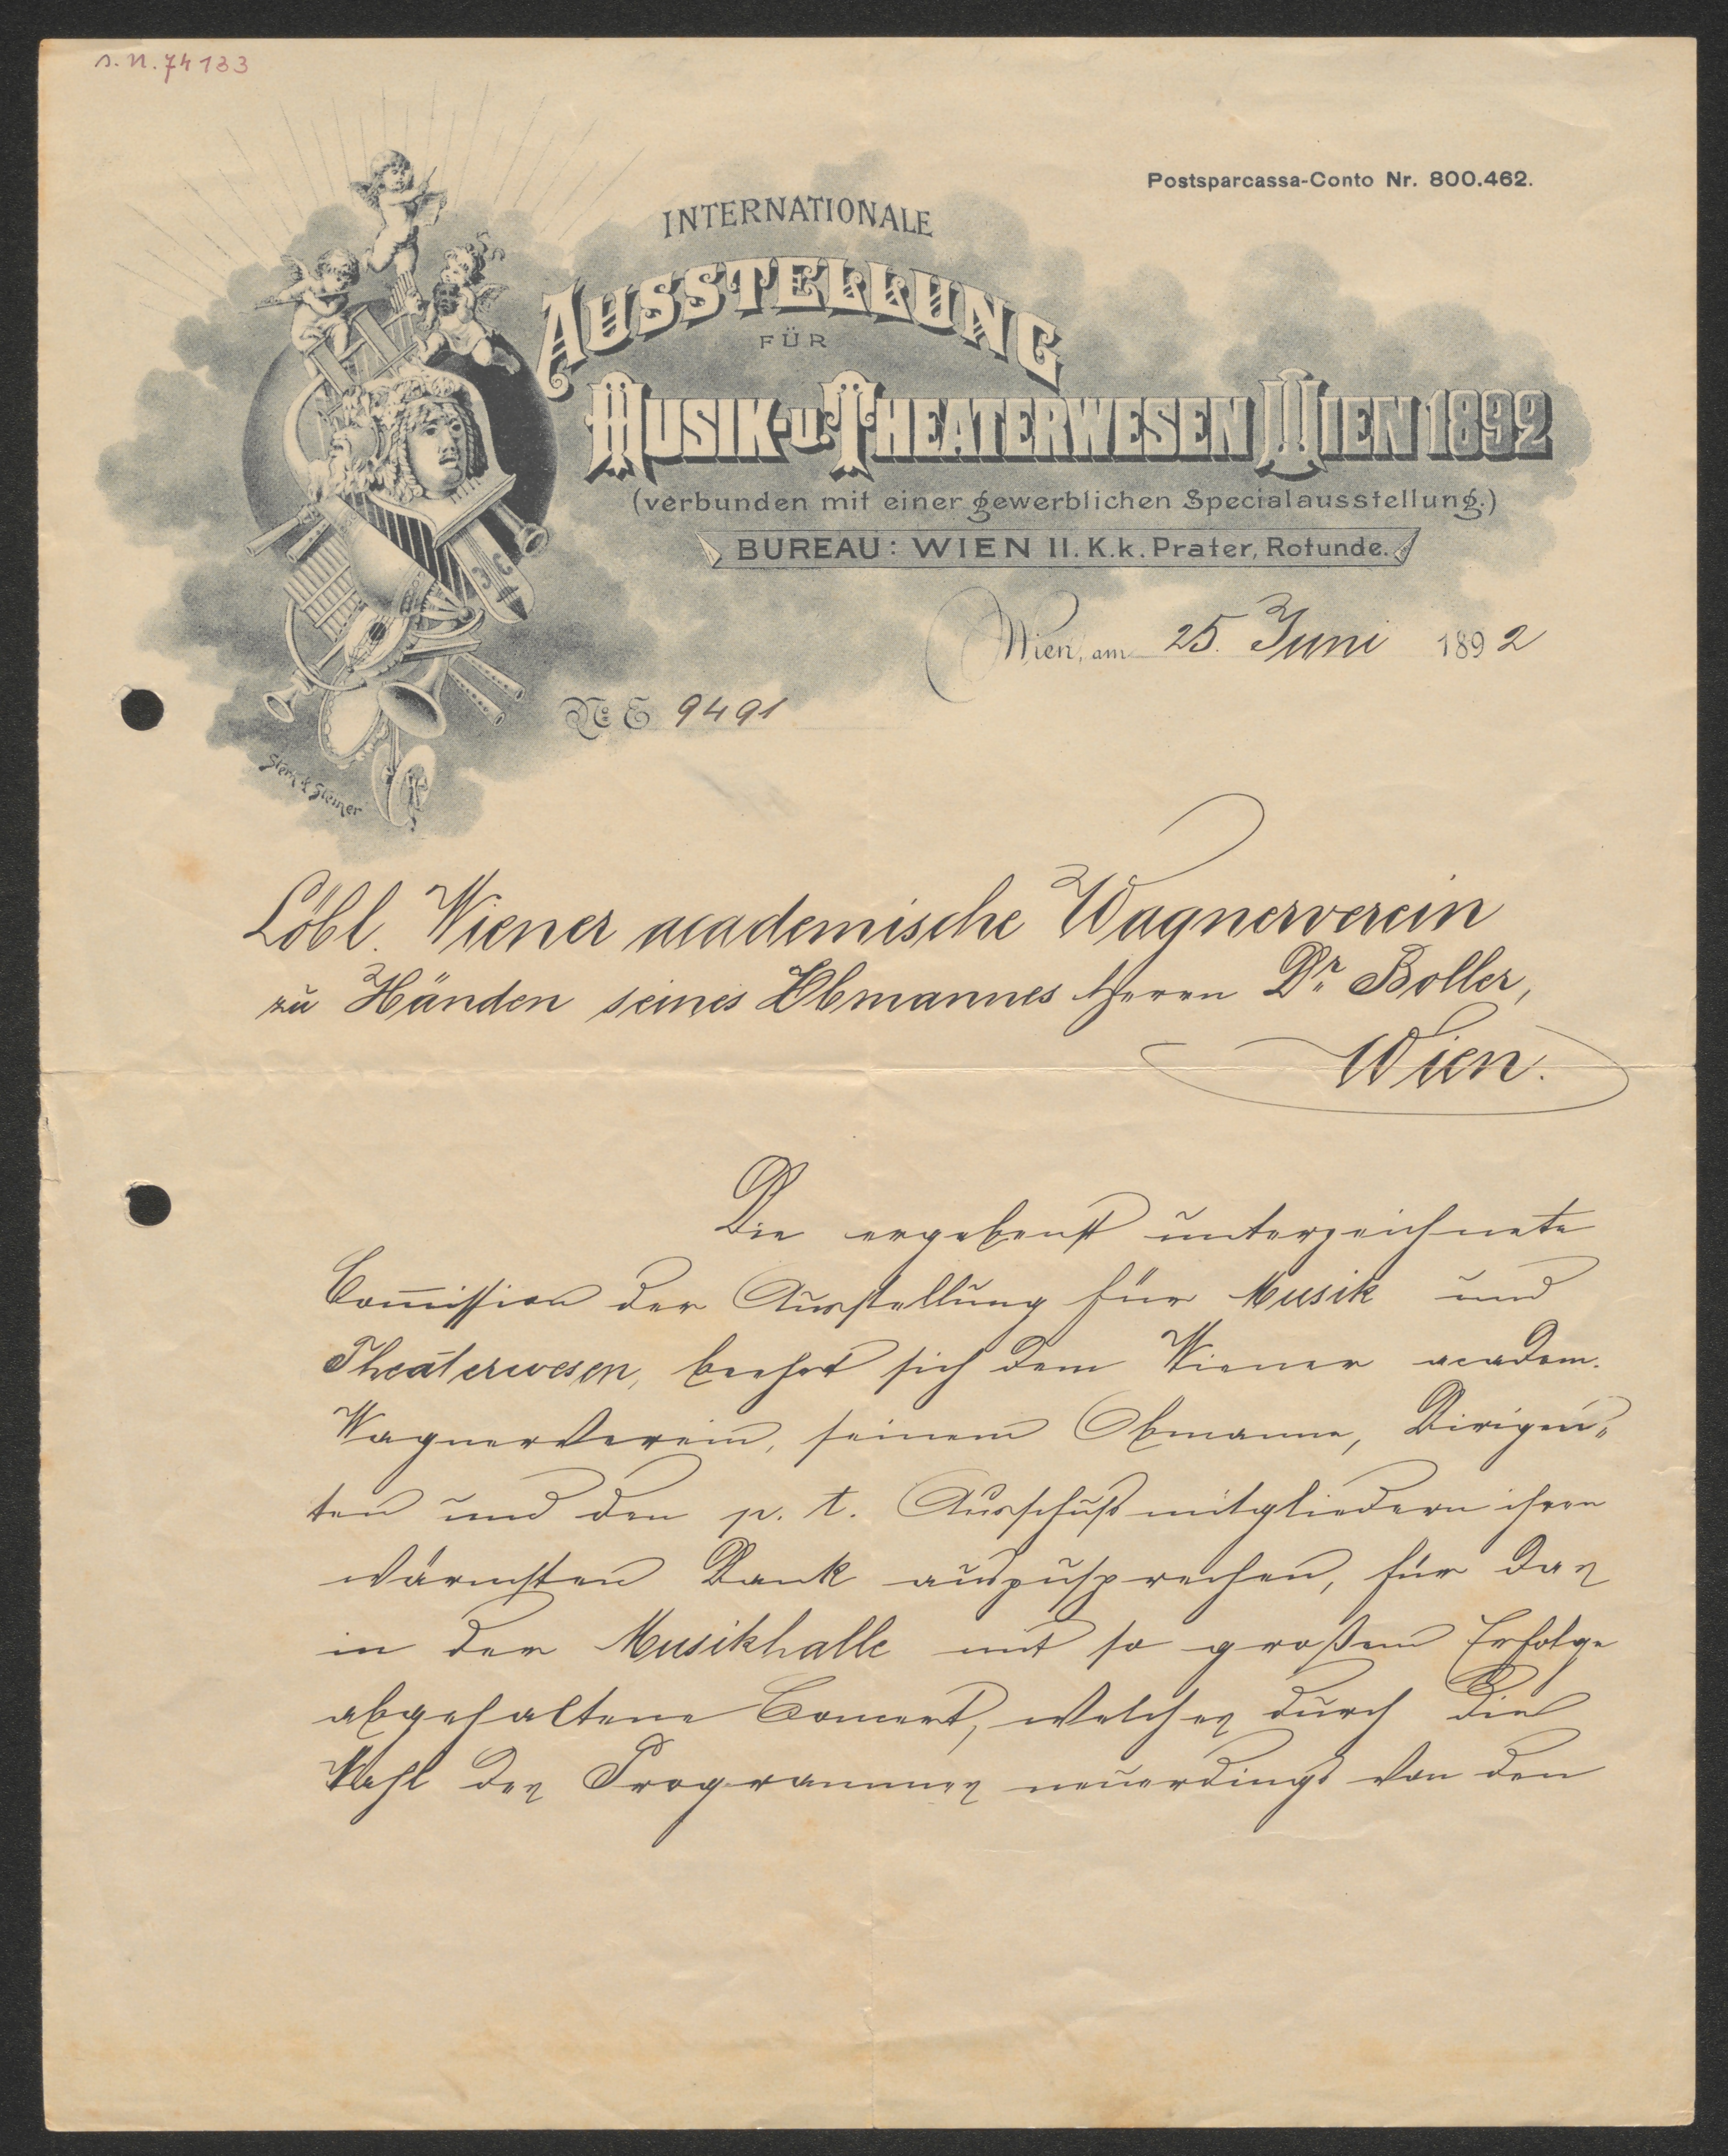 s. n. 74133
Postsparcassa-Conto Nr. 800.462.
INTERNATIONALE
AUSSTELLUNG
FÜR
MUSIK- u. THEATERWESEN WIEN 1892
(verbunden mit einer gewerblichen Specialausstellung.)
BUREAU: WIEN II. K.k. Prater, Rotunde.
Wien, am 25. Juni 1892
No. E 9491
Stern & Steiner
Löbl. Wiener academische Wagnerverein
zu Händen seines Obmannes Herrn Dr. Boller,
Wien.
Die ergebenst unterzeichnete
Com̄ission der Ausstellung für Musik und
Theaterwesen, beehrt sich dem Wiener academ.
Wagnerverein, seinem Obmanne, Dirigen„
ten und den p. t. Ausschußmitgliedern ihren
wärmsten Dank auszusprechen, für das
in der Musikhalle mit so großem Erfolge
abgehaltene Concert, welches durch die
Wahl des Programmes neuerdings von den